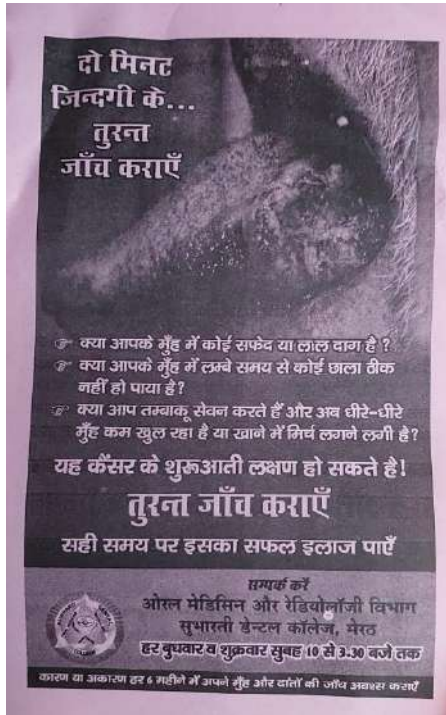 दो मिनट
जिन्दगी के...
तुरन्त
जाँच कराएँ
क्या आपके मुँह में कोई सफेद या लाल दाग है ?
क्या आपके मुँह में लम्बे समय से कोई छाला ठीक
नहीं हो पाया है?
क्या आप तम्बाकू सेवन करते हैं और अब धीरे-धीरे
मुँह कम खुल रहा है या खाने में मिर्च लगने लगी है?
यह कैंसर के शुरूआती लक्षण हो सकते है!
तुरन्त जाँच कराएँ
सही समय पर इसका सफल इलाज पाएँ
सम्पर्क करें
ओरल मेडिसिन और रेडियोलॉजी विभाग
सुभारती डेन्टल कॉलेज, मेरठ
हर बुधवार व शुक्रवार सुबह 10 से 3.30 बजे तक
कारण या अकारण हर 6 महीने में अपने मुँह और दांतों की जाँच अवश्य कराएँ